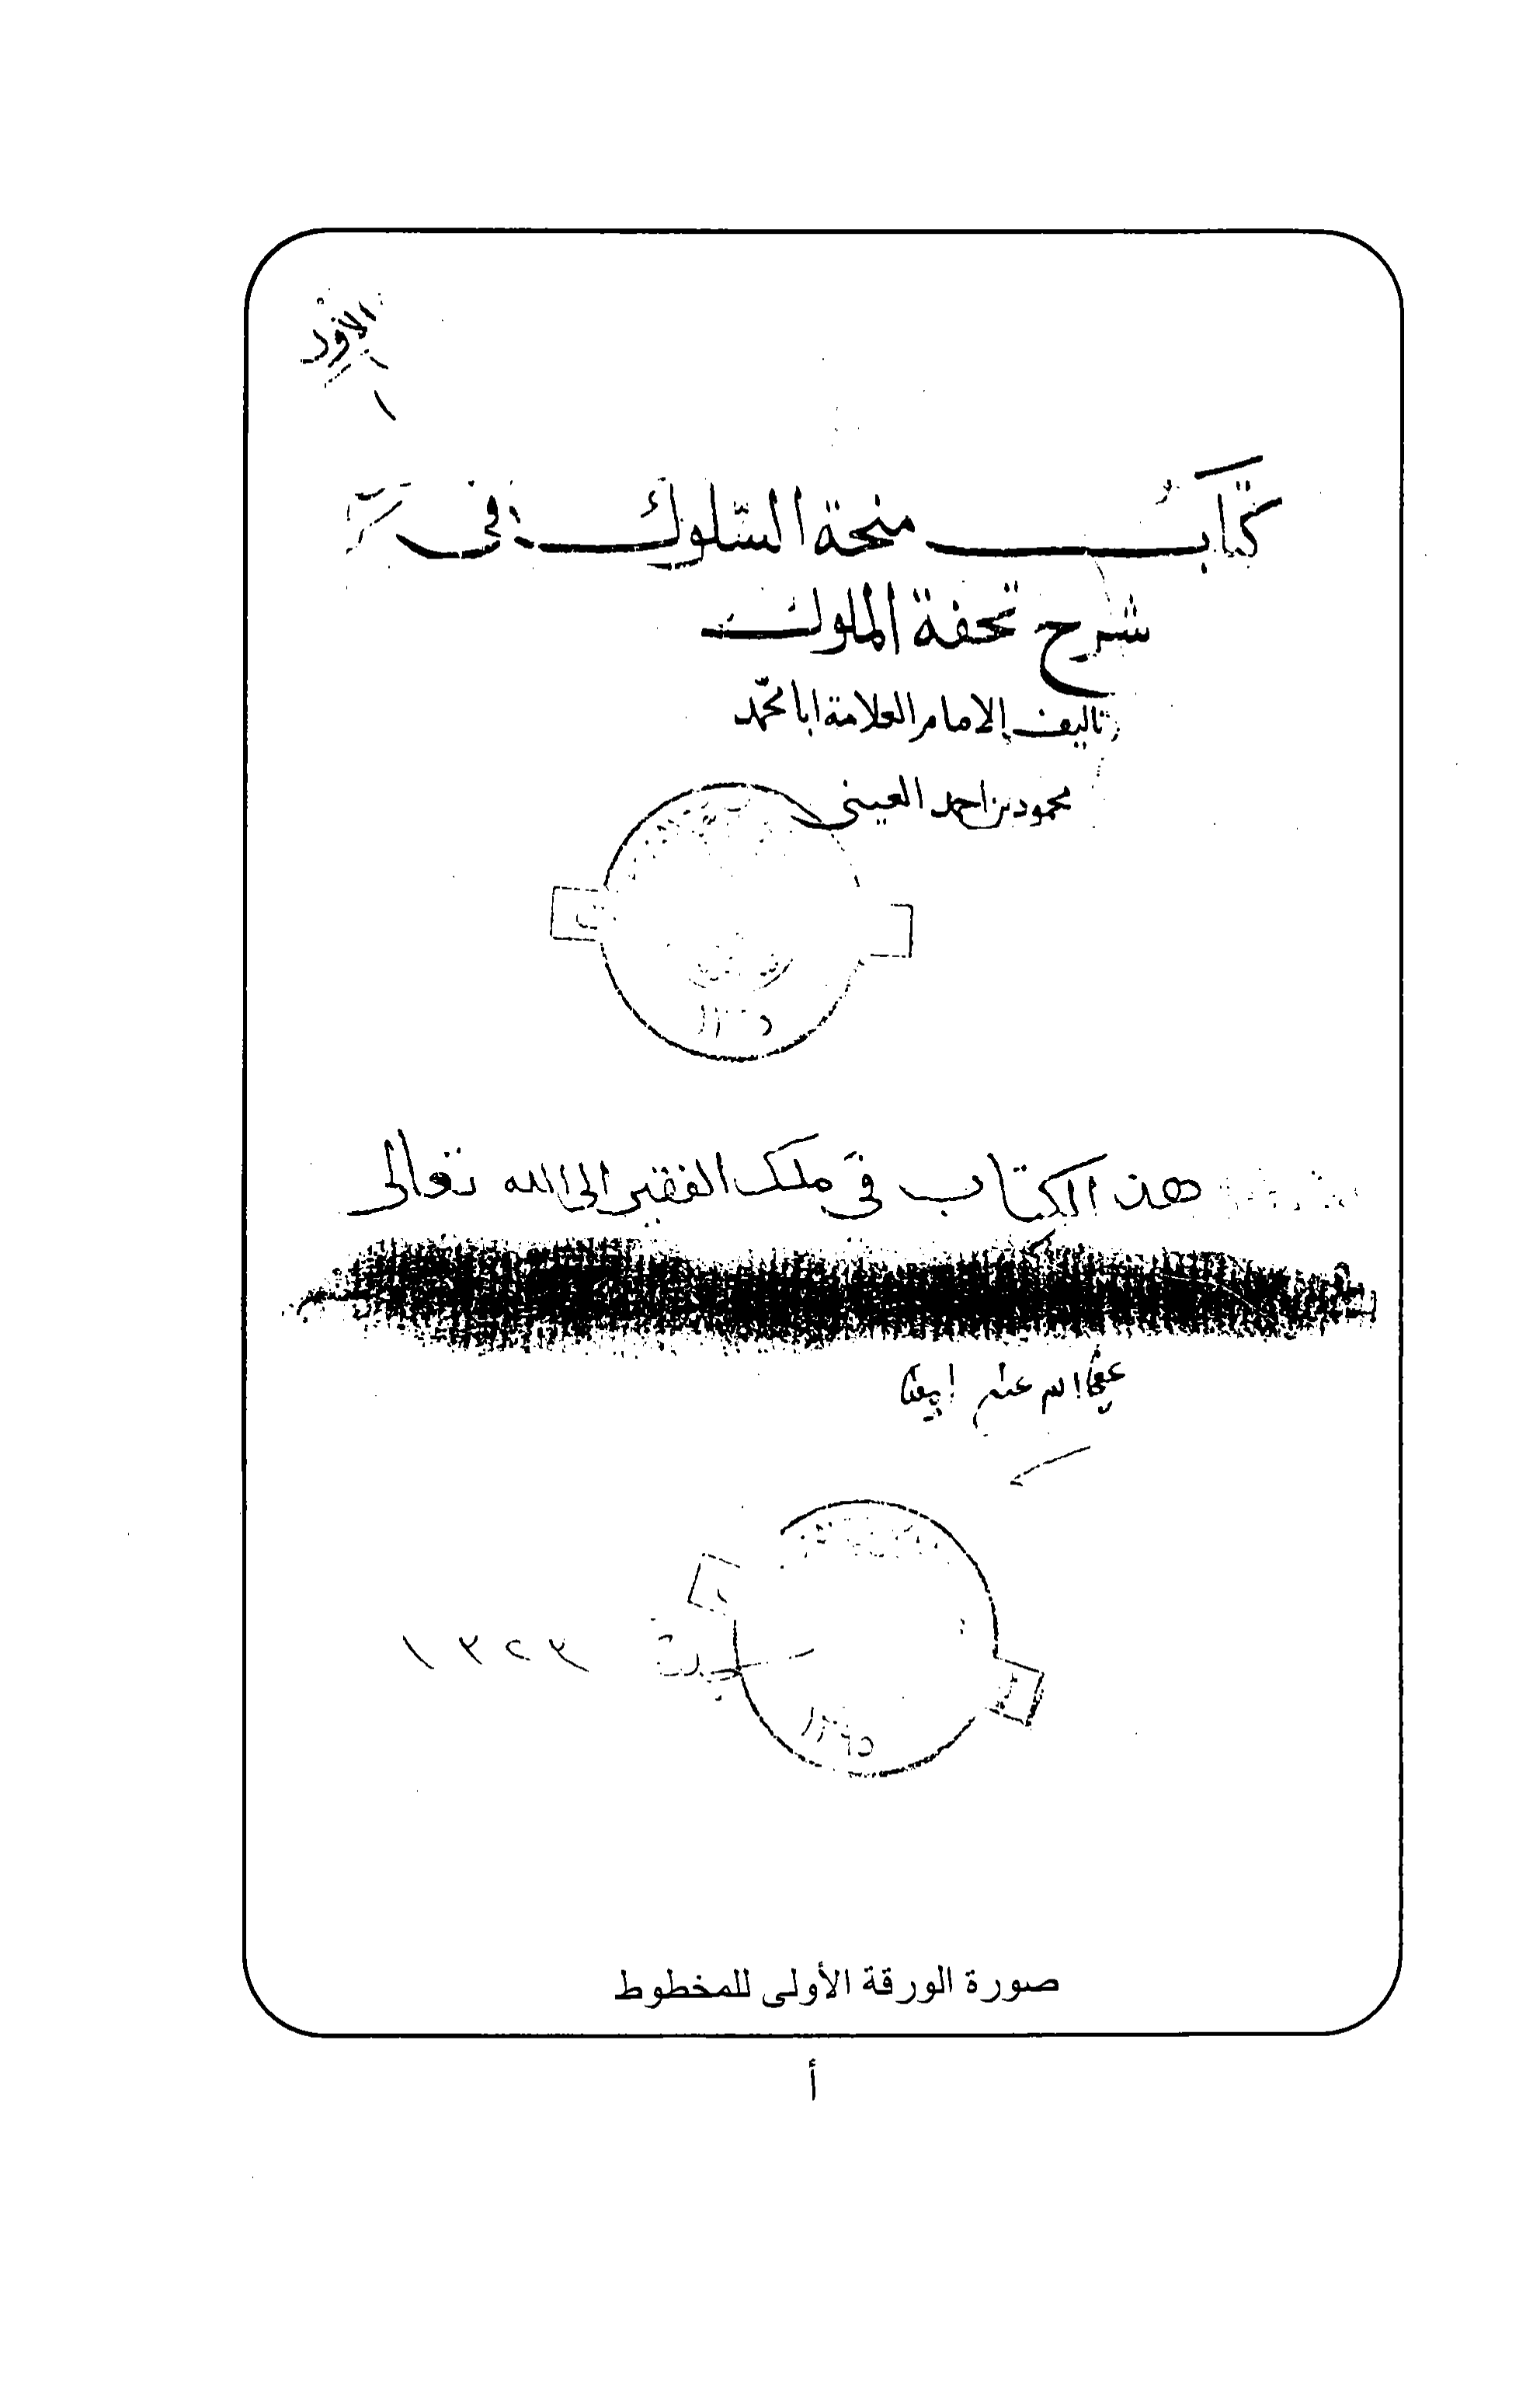 كتاب منحة السلوك في
شرح تحفة الملوك
تاليف الامام العلامة ابا محمد
محمود بن احمد العينى
هذ الكتاب في ملك الفقير الى الله تعالى
عفى الله عنه
١٣٢٣
١٢٩٥
صورة الورقة الأولى للمخطوط
أ